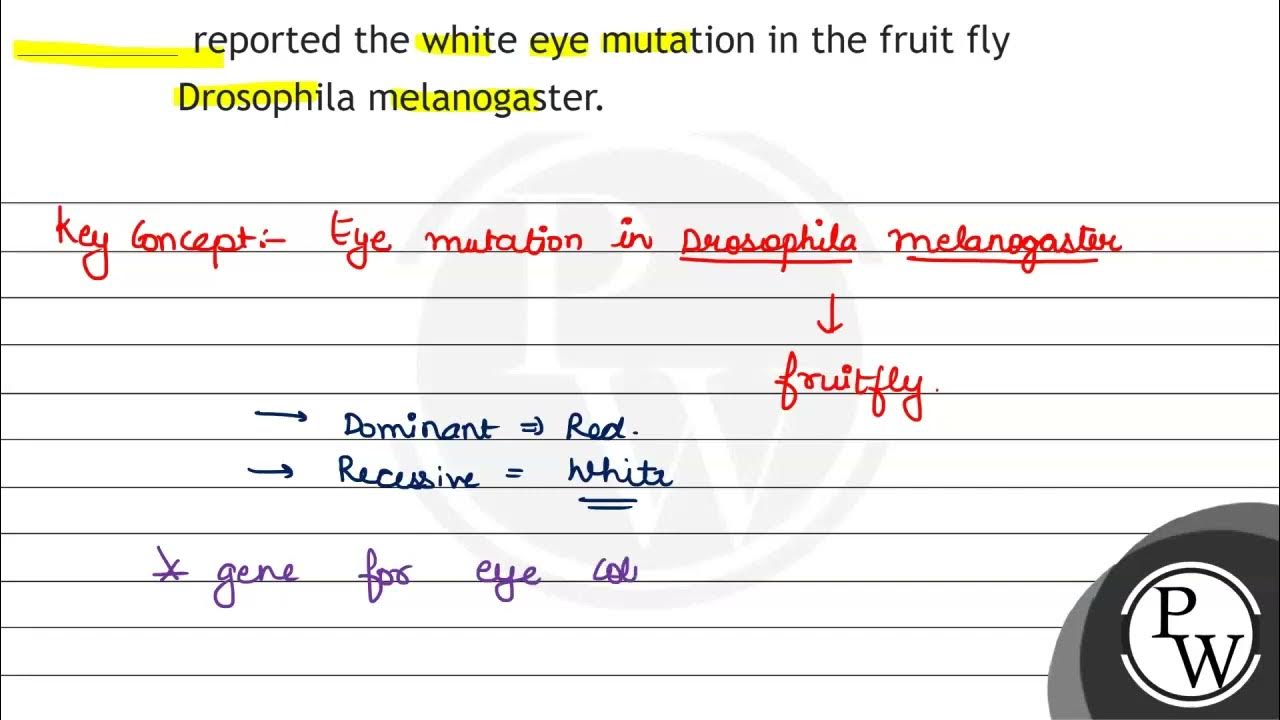 ________ reported the white eye mutation in the fruit fly
Drosophila melanogaster.
Key Concept:- Eye mutation in Drosophila melanogaster
↓
fruitfly.
→ Dominant ⇒ Red.
→ Recessive = White
* gene for eye col
PW
PW